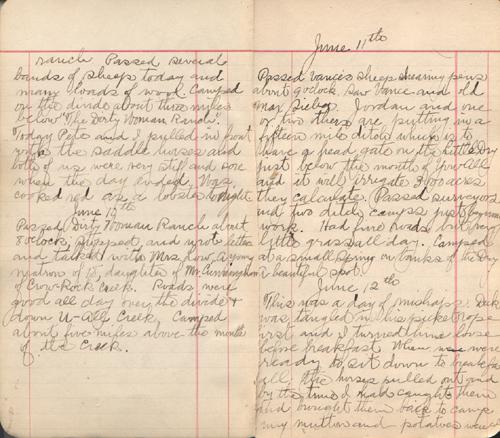 ranch. Passed several
bands of sheep today and
many loads of wool. Camped
on the divide about three miles
below "The Dirty Woman Ranch."
Today Pete and I pulled in front
with the saddle horses and
both of us were very stiff and sore
when the day ended. Was
cooked red as a lobster tonight
June 10th
Passed Dirty Woman Ranch about
8 oclock, stopped, and wrote letters
and talked with Mrs. Low, a young
matron of 15, daughter of Mr. Cunningham
of Crow-Rock Creek. Roads were
good all day over the divide &
down U-All Creek. Camped
about five miles above the mouth
of the Creek.
June 11th
Passed Vance's sheep shearing pens
about 9 oclock. Saw Vance and old
man Sieben. Jordan and one
or two others are putting in a
fifteen mile ditch which is to
have a head gate on the Little Dry
just below the mouth of You-All
and it will irrigate 3000 acres
they calculate. Passed surveyors
and two ditch camps just
work. Had fine roads but very
little grass all day. Camped
at a small spring on banks of the Dry
a beautiful spot.
June 12th
This was a day of mishaps.
was tangled in his picket rope
first and I turned him loose
before breakfast. When we were
ready to sit down to breakfast
all the horses pulled out and
by the time I had caught them
and brought them back to camp
my mutton and potatoes were